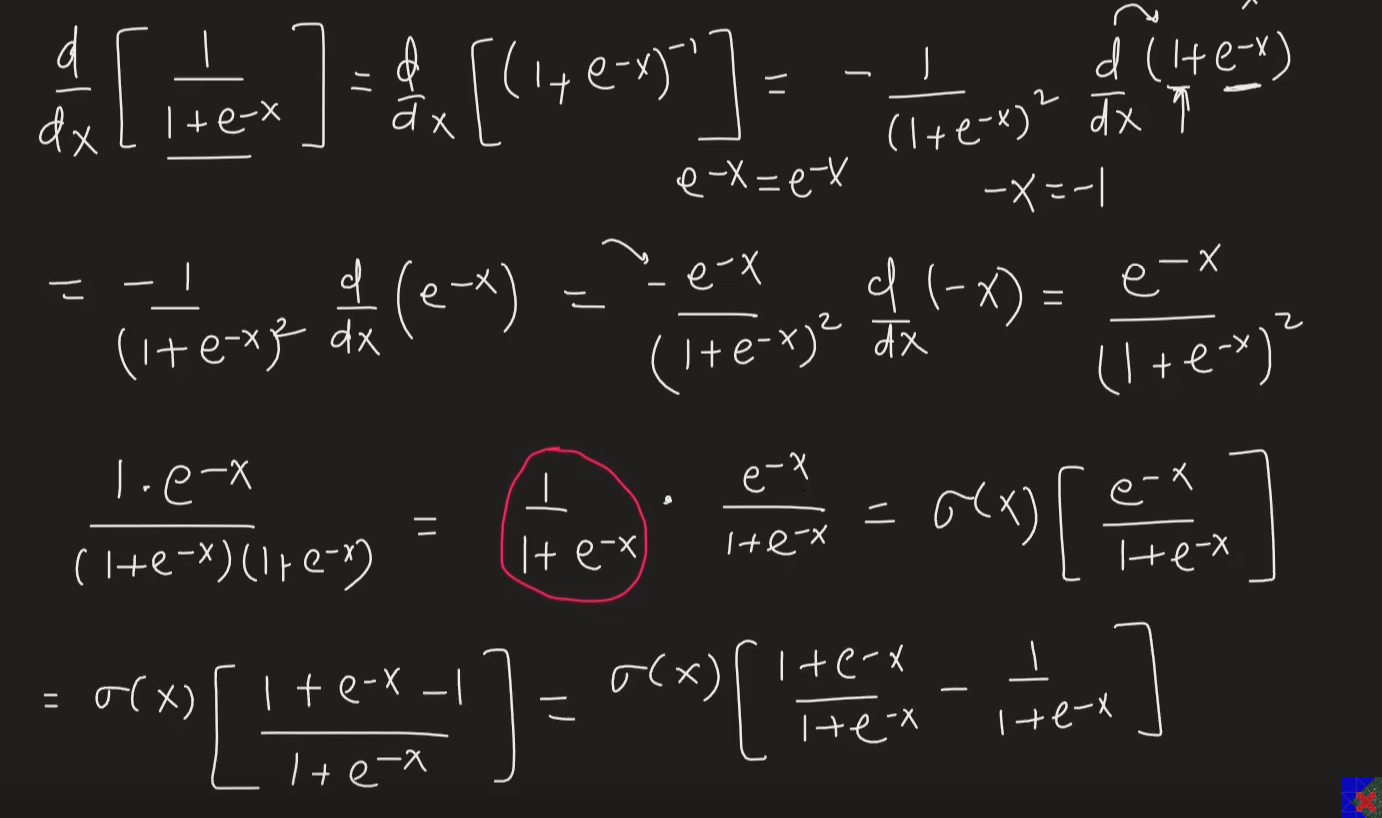 d/dx [ 1/(1+e^-x) ] = d/dx [ (1+e^-x)^-1 ] = - 1/(1+e^-x)^2 d/dx (1+e^-x)
e^-x = e^-x -x = -1
= -1/(1+e^-x)^2 d/dx (e^-x) = - e^-x/(1+e^-x)^2 d/dx (-x) = e^-x/(1+e^-x)^2
1·e^-x/((1+e^-x)(1+e^-x)) = 1/(1+e^-x) · e^-x/(1+e^-x) = σ(x) [ e^-x/(1+e^-x) ]
= σ(x) [ (1+e^-x -1)/(1+e^-x) ] = σ(x) [ (1+e^-x)/(1+e^-x) - 1/(1+e^-x) ]